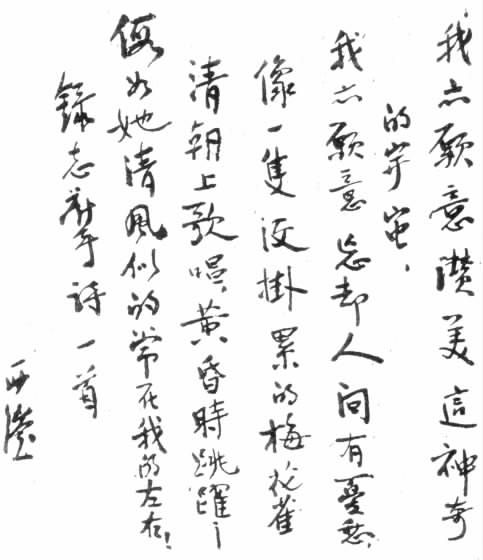 我亦願意讚美這神奇
的宇宙，
我亦願意忘却人間有憂愁，
像一隻沒掛累的梅花雀
清朝上歌唱，黃昏時跳躍；—
假如她清風似的常在我的左右！
錄志摩詩一首
西瀅